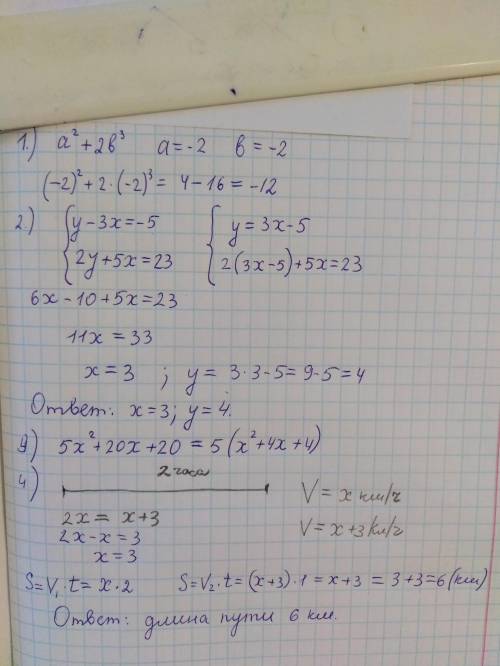 1.) a² + 2в³ a = -2 в = -2
(-2)² + 2 · (-2)³ = 4 - 16 = -12
2.) { y - 3x = -5 { y = 3x - 5
2y + 5x = 23 2(3x - 5) + 5x = 23
6x - 10 + 5x = 23
11x = 33
x = 3 ; y = 3 · 3 - 5 = 9 - 5 = 4
Ответ: x = 3; y = 4.
9) 5x² + 20x + 20 = 5(x² + 4x + 4)
4) 2 часа
V = x км/ч
2x = x + 3 V = x + 3 км/г
2x - x = 3
x = 3
S = V₁ · t = x · 2 S = V₂ · t = (x + 3) · 1 = x + 3 = 3 + 3 = 6 (км)
Ответ: длина пути 6 км.